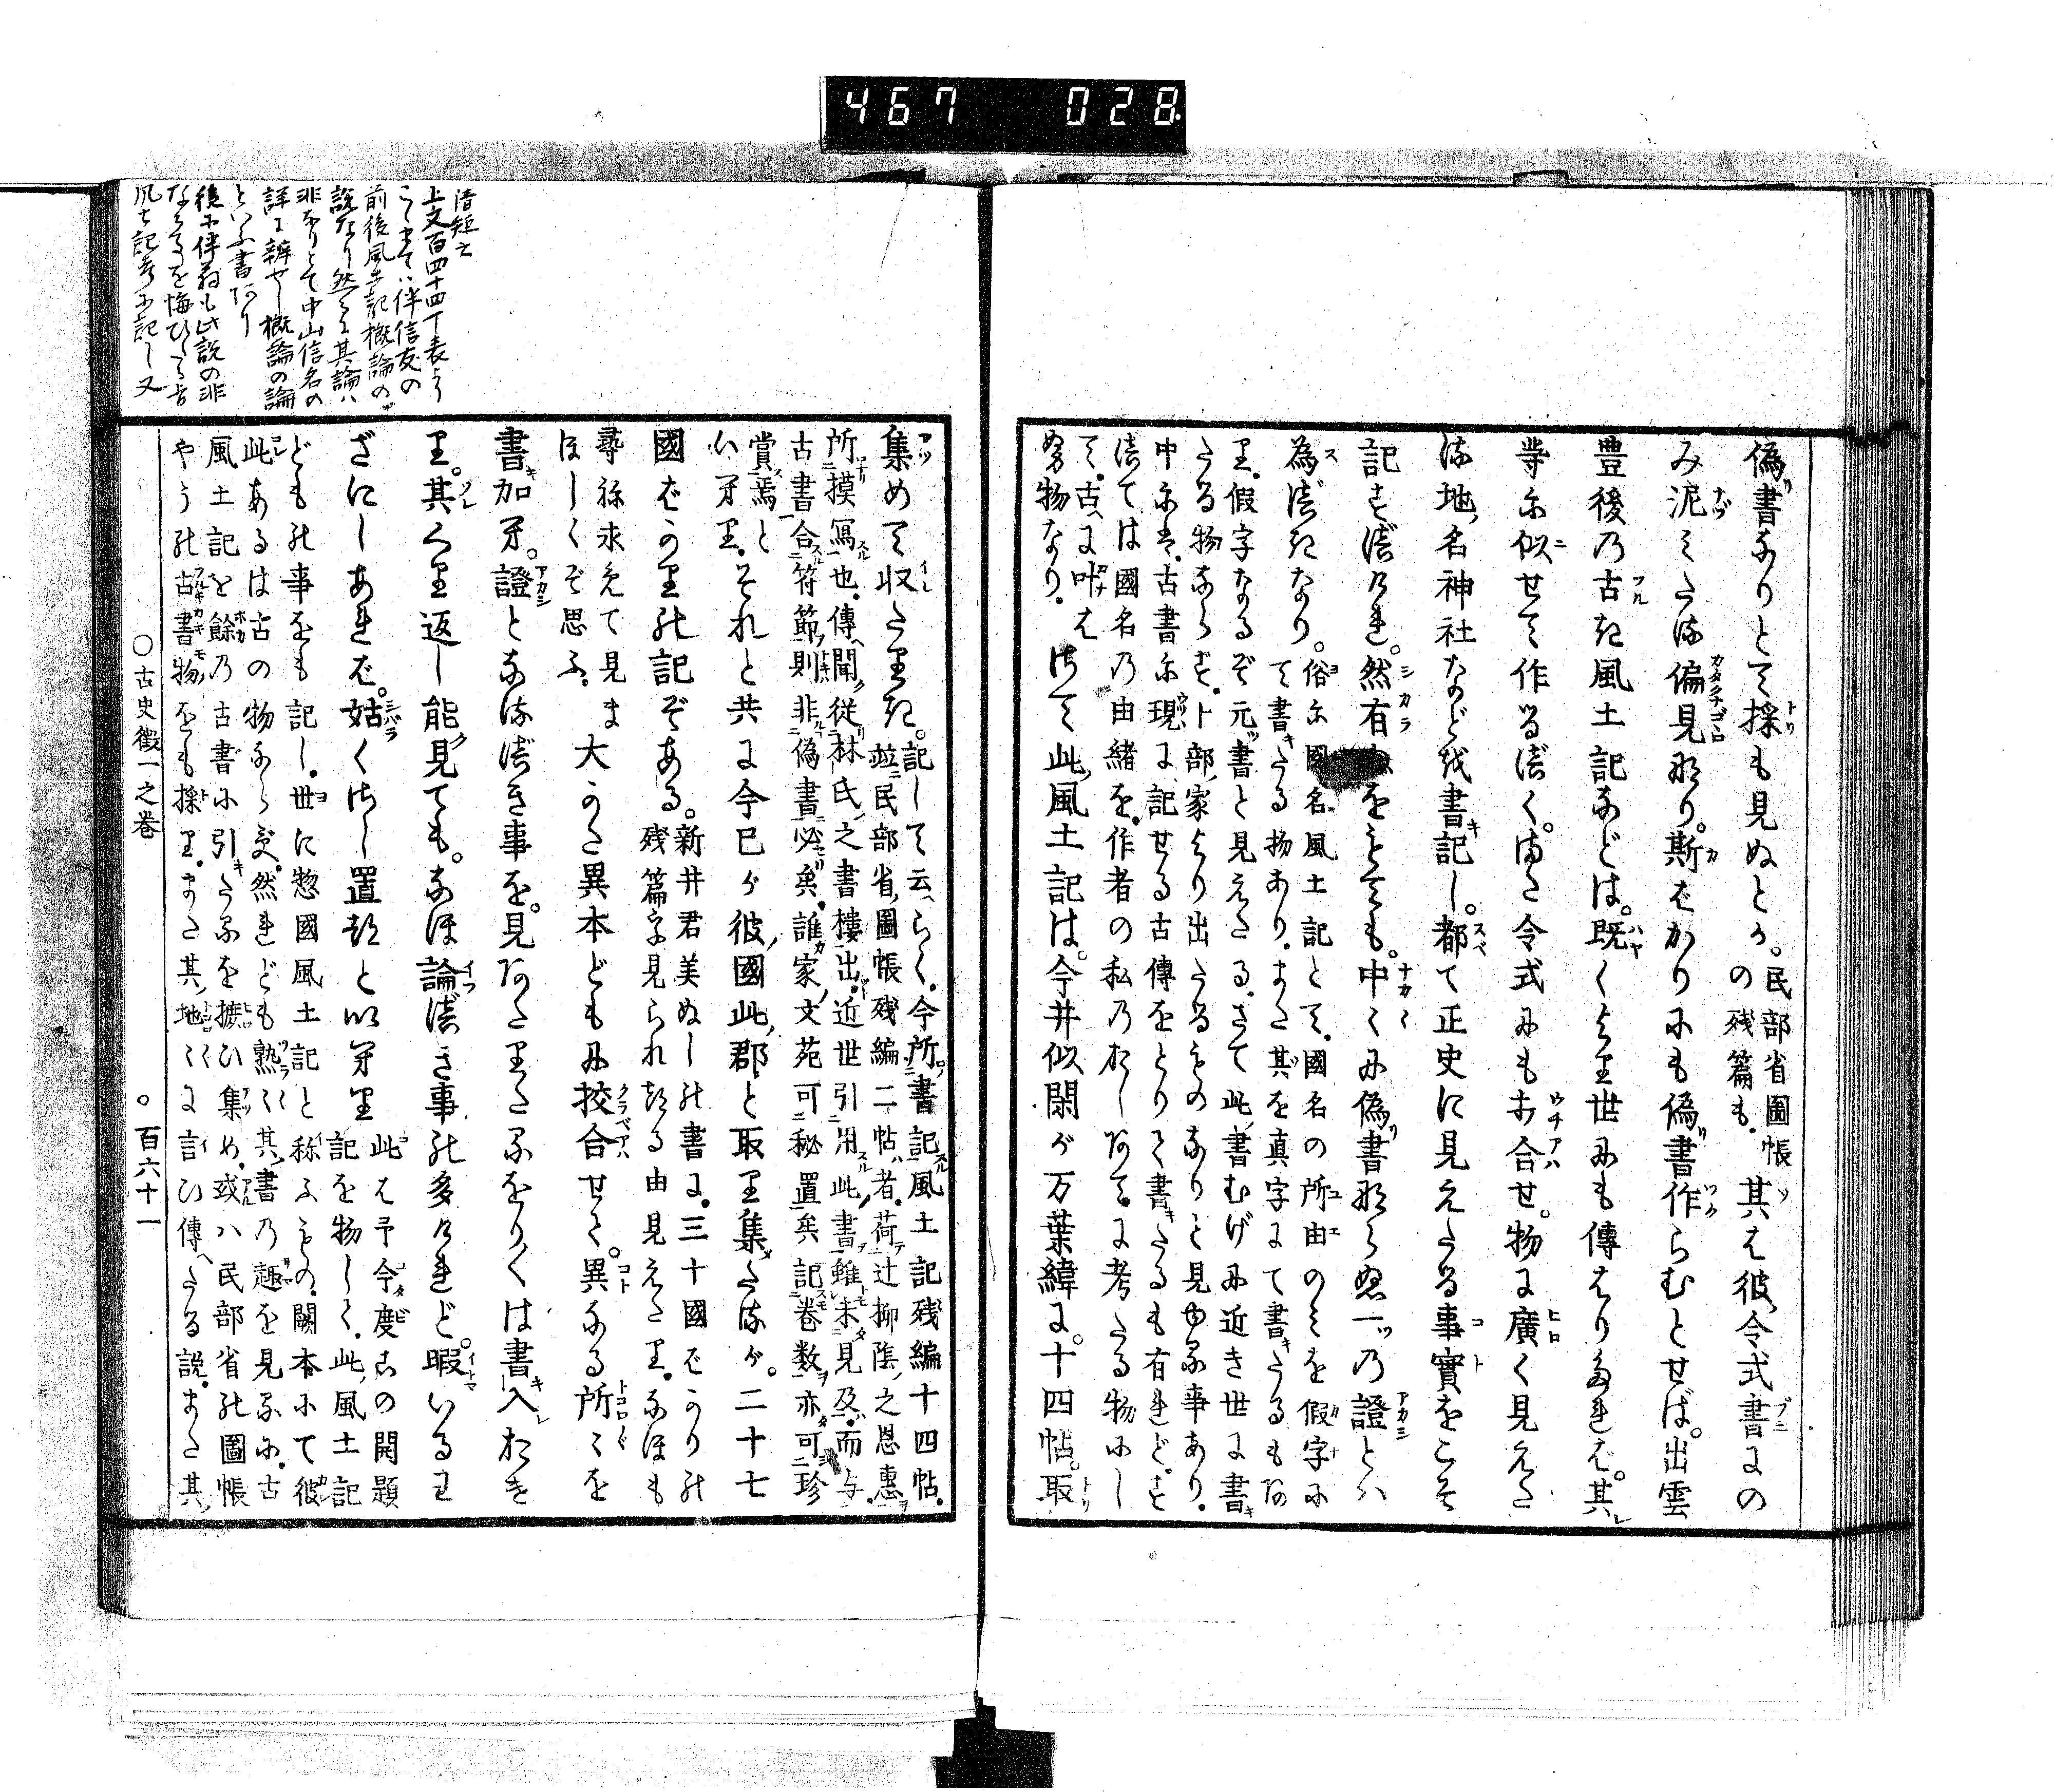 467 028
偽書なりとて採も見ぬとか。民部省圖帳の残篇も。其は彼令式書にの
み泥みたる偏見なり。斯ばかりにも偽書作らむとせば。出雲
豊後の古き風土記などは。既くより世にも傳はり有れば。其
等に似せて作るべく。また令式にもお合せ。物に廣く見えた
る地名神社などを書記し。都て正史に見えたる事實をこそ
記すべけれ。然有をとても。中々に偽書ならぬ一つの證とハ
為べきなり。俗に國名風土記とて。國名の所由のミを假字に
て書きたる物あり。また其を真字にて書きたるもあ
り。假字なるぞ元書と見えたる。さて此書むげに近き世に書き
たる物ならず。卜部家より出たるものなりと見ゆる事あり。
中には。古書に現に記せる古傳をとりて書きたるも有れど。す
べては國名の由緒を。作者の私のおしあてに考たる物にし
て。古へに叶はぬ物なり。
さて此風土記は。今井似閑が万葉緯に。十四帖。取
集めて収れたりき。記して云らく。今所書記風土記残編十四帖。
並民部省圖帳残編二帖者。荷辻柳陰之恩惠。
所摸冩也。傳聞從林氏之書樓出。近世引用此書雖未見及。而与
古書合符節則非偽書必矣。誰家文苑可秘置矣記巻数亦可珍
賞焉と
いへり。それと共に今己が彼國此郡と取り集たるが。二十七
國ばかりの記ぞある。新井君美ぬしの書に。三十國ばかりの
残篇字見られたる由見えたり。なほも
尋ね求めて見ま
ほしくぞ思ふ。
大かた異本どもに挍合せて。異なる所々を
書加へ。證となるべき事を。見あたりたるをりくは書入おき
り。其くり返し能見ても。なほ論べき事の多かれど。暇いるわ
ざにしあれば。姑くさし置きと以へり
此は予今度古の開題
記を物して。此風土記
どもの事をも記し。世に惣國風土記と称ふもの。闕本にて彼
此あるは古の物ならず。然れども熟々其書の趣を見るに。古
風土記を餘の古書に引きたるを摭ひ集め。或ハ民部省の圖帳
やうの古書物をも採り。また其地々に言ひ傳へたる説。また其
○古史徴一之巻
○百六十一
清矩云
上文百四十四丁表より
こゝまでハ伴信友の
前後風土記概論の
説なり然るに其論ハ
非なりとて中山信名の
詳に辨せし概論の論
といふ書あり
後に伴翁も此説の非
なるを悔ひたる旨
風土記考に記し又